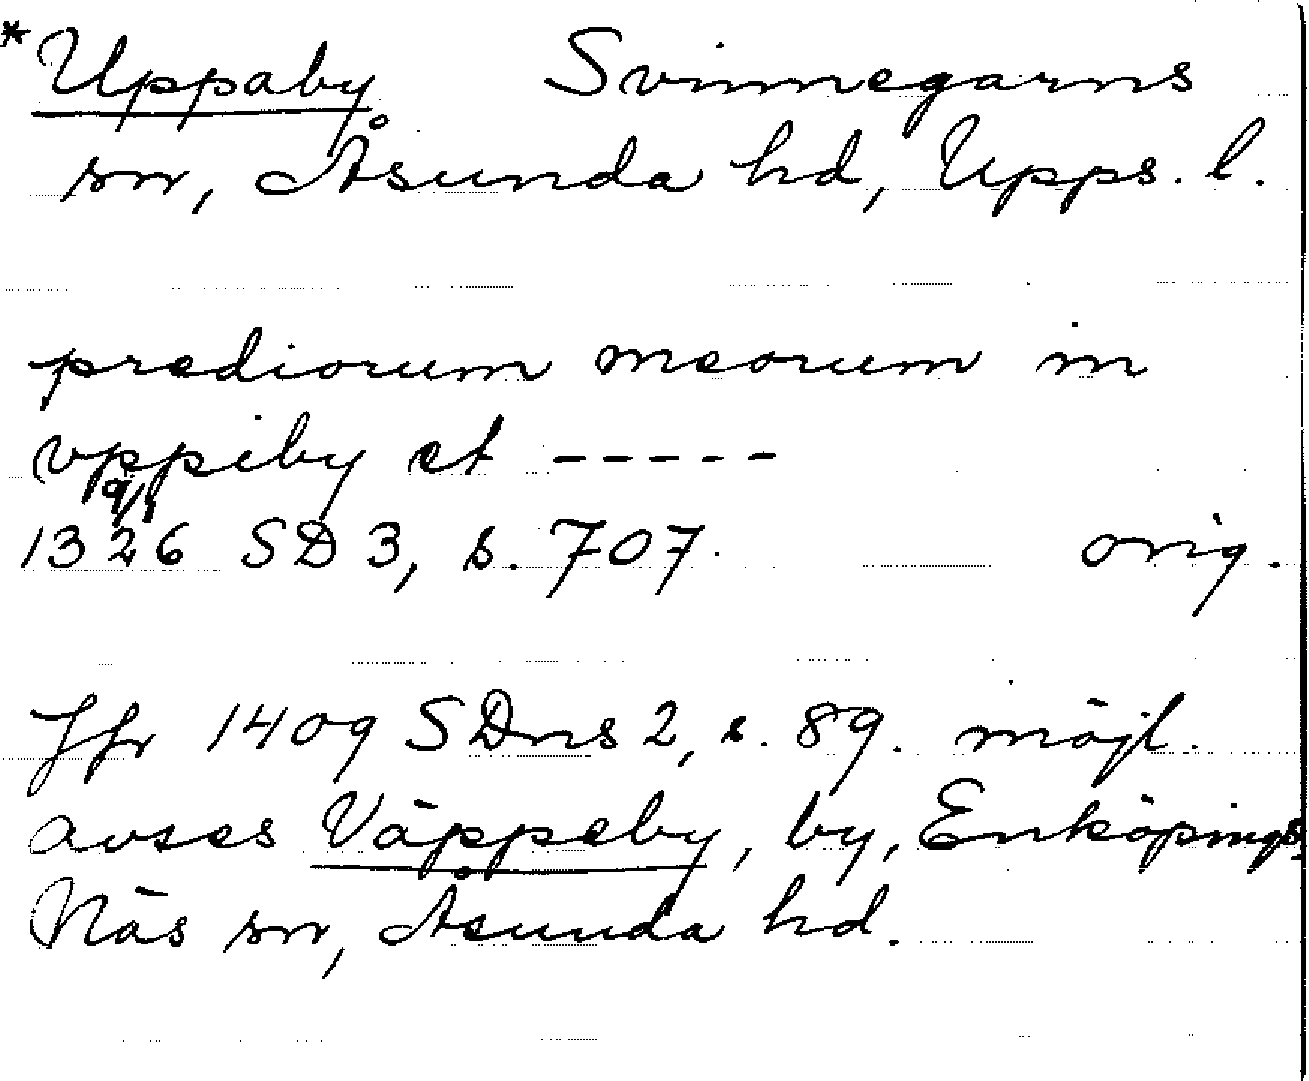 *Uppaby Svinnegarns
sn, Åsunda hd, Upps. l.
prediorum meorum in
vppiby et -----
9/1
1326 SD 3, s. 707. orig.
Jfr 1409 SDns 2, s. 89. möjl.
avses Väppeby, by, Enköpings
Näs sn, Åsunda hd.